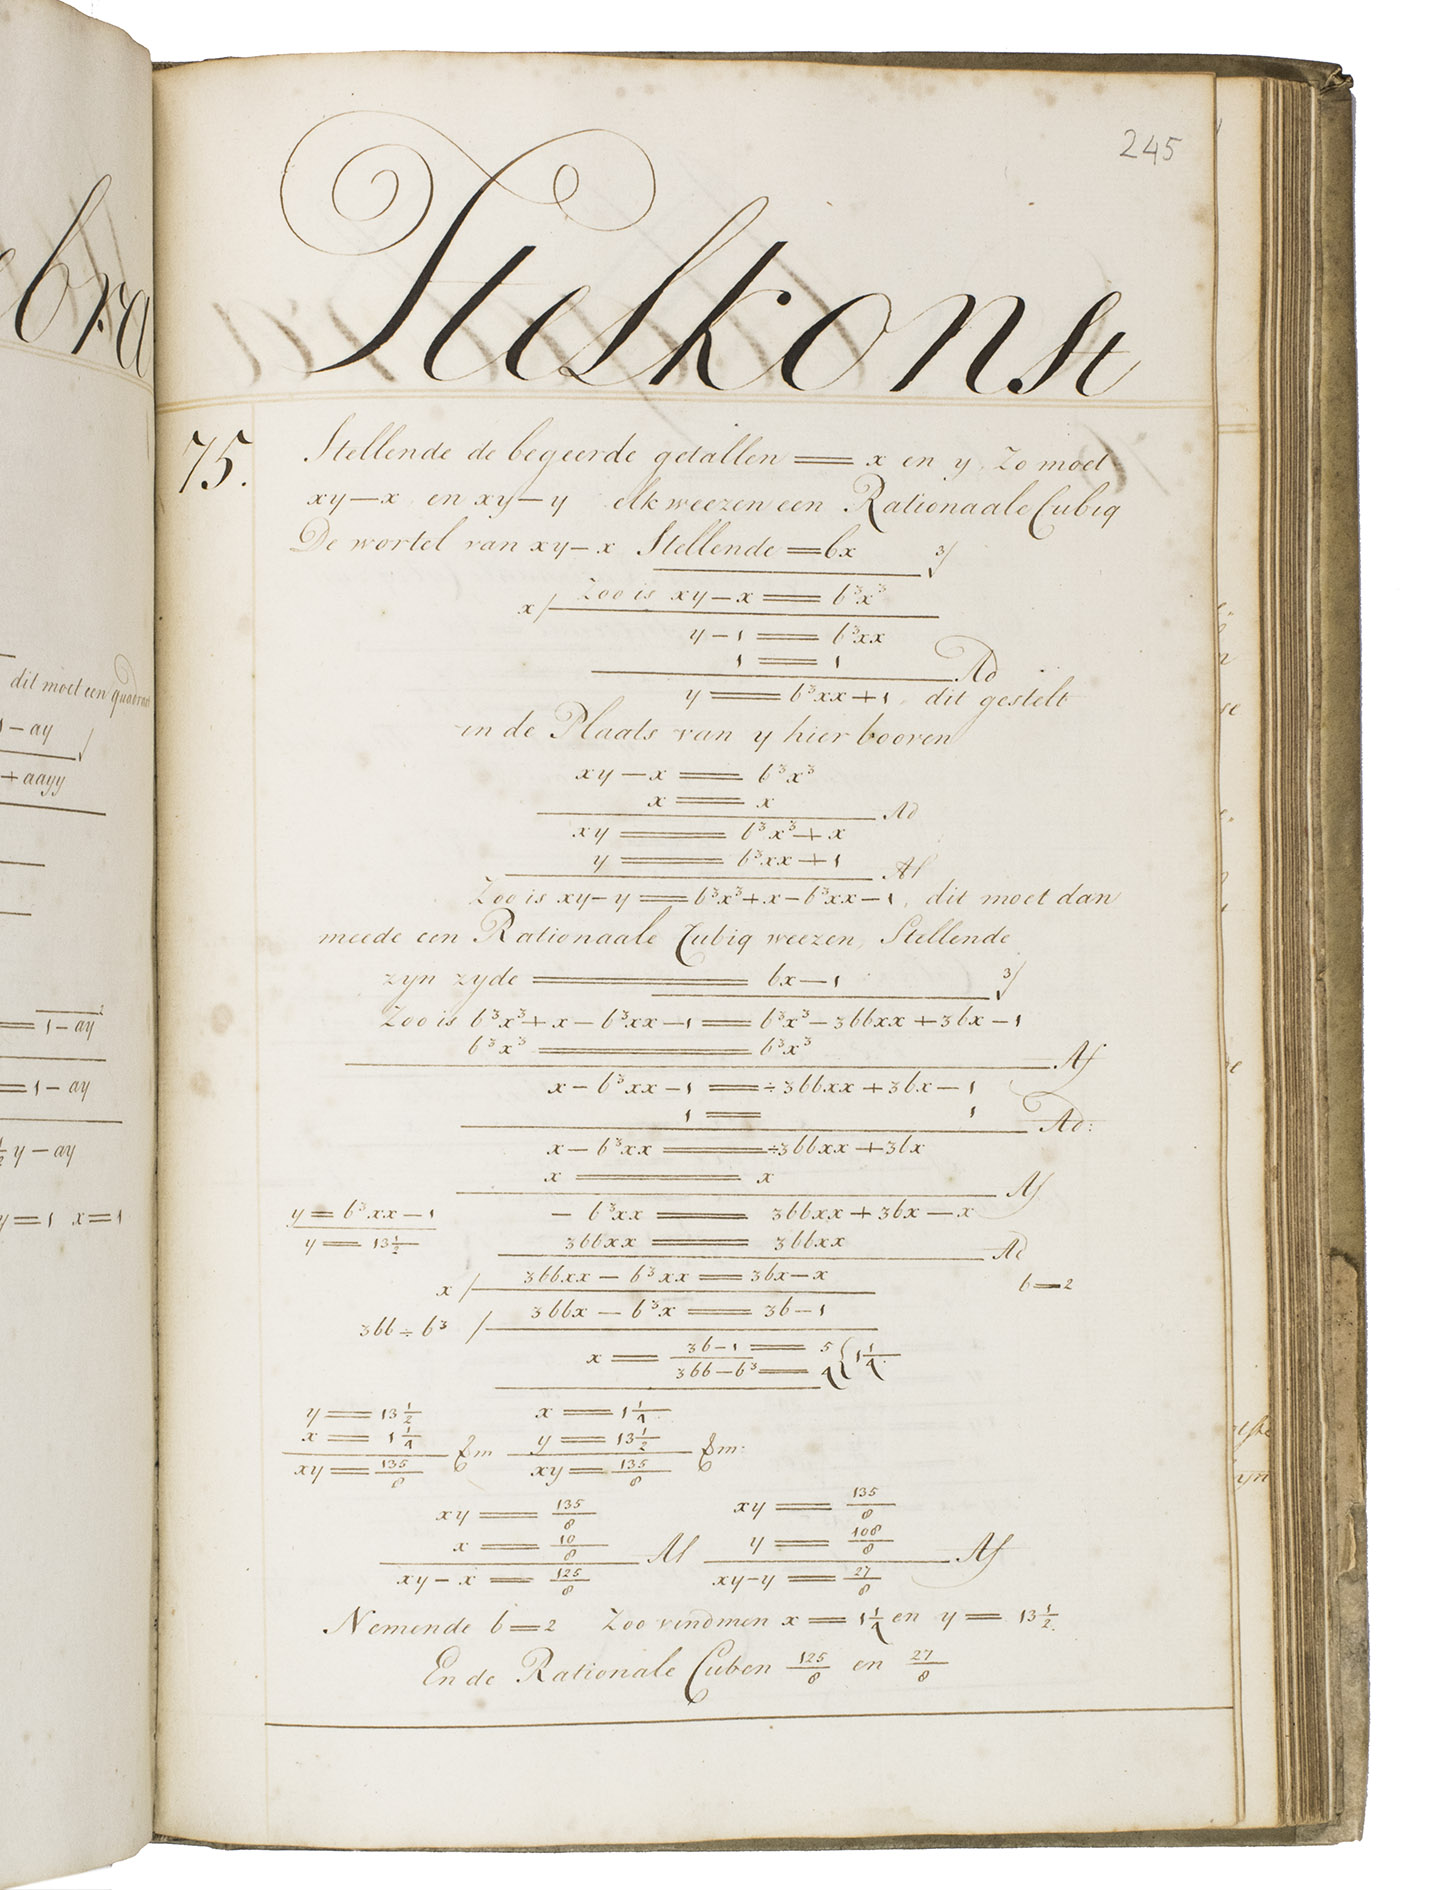 ebra
dit moet een quadraat
1 – ay
+ aayy
= 1 – ay
= 1 – ay
½ y – ay
y = 1 x = 1
245
Stelkonst
75.
Stellende de begeerde getallen = x en y, Zo moet
xy – x en xy – y elk weezen een Rationaale Cubiq
De wortel van xy – x Stellende = bx 3√
x / Zoo is xy – x = b³x³
y – 1 = b³xx
1 = 1 Ad
y = b³xx + 1, dit gestelt
in de Plaats van y hier booven
xy – x = b³x³
x = x Ad
xy = b³x³ + x
y = b³xx + 1 Af
Zoo is xy – y = b³x³ + x – b³xx – 1, dit moet dan
meede een Rationaale Cubiq weezen, Stellende
zyn zyde = bx – 1 3√
Zoo is b³x³ + x – b³xx – 1 = b³x³ – 3bbxx + 3bx – 1
b³x³ = b³x³ Af
x – b³xx – 1 = ÷ 3bbxx + 3bx – 1
1 = 1 Ad:
x – b³xx = ÷ 3bbxx + 3bx
x = x Af
y = b³xx – 1 – b³xx = 3bbxx + 3bx – x
y = 13½ 3bbxx = 3bbxx Ad
x / 3bbxx – b³xx = 3bx – x b = 2
3bb ÷ b³ / 3bbx – b³x = 3b – 1
x = 3b – 1 / 3bb – b³ = 5 / 4 { 1¼
y = 13½ x = 1¼
x = 1¼ m y = 13½ m:
xy = 135/8 xy = 135/8
xy = 135/8 xy = 135/8
x = 10/8 Af y = 108/8 Af
xy – x = 125/8 xy – y = 27/8
Nemende b = 2 Zoo vindmen x = 1¼ en y = 13½.
En de Rationale Cuben 125/8 en 27/8